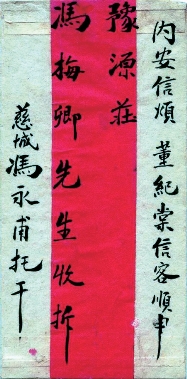 内安信煩 董紀棠信客順申
豫源莊
馮梅卿先生收拆
慈城馮永甫托干